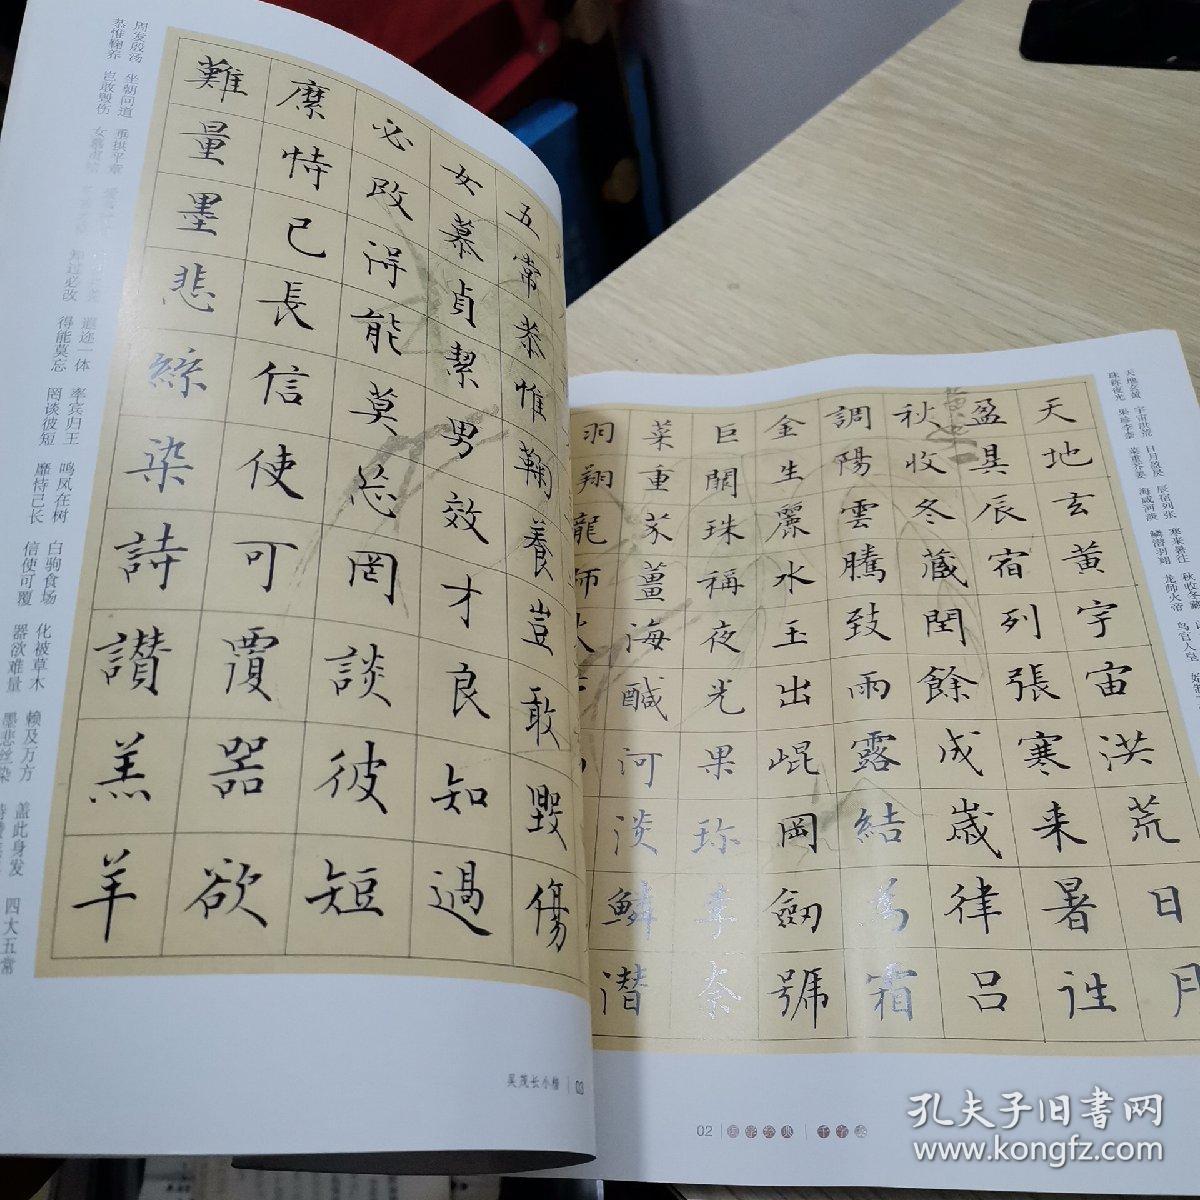 天地玄黄 宇宙洪荒 日月盈昃 辰宿列张 寒来暑往 秋收冬藏
珠称夜光 果珍李柰 菜重芥姜 海咸河淡 鳞潜羽翔 龙师火帝 鸟官人皇
天地玄黄宇宙洪荒日月
盈昃辰宿列張寒来暑往
秋收冬藏閏餘成歲律吕
調陽雲騰致雨露結為霜
金生麗水玉出崐岡劒號
巨闕珠稱夜光果珍李柰
菜重芥薑海鹹河淡鱗潜
羽翔龍師火
02 国学经典 千字文
五常恭惟鞠養豈敢毁傷
女慕貞絜男效才良知過
必改得能莫忘罔談彼短
靡恃己長信使可覆器欲
難量墨悲絲染詩讚羔羊
周发殷汤 坐朝问道 垂拱平章 遐迩一体 率宾归王 鸣凤在树 白驹食场 化被草木 赖及万方 盖此身发 四大五常
恭惟鞠养 岂敢毁伤 女慕贞洁 知过必改 得能莫忘 罔谈彼短 靡恃己长 信使可覆 器欲难量 墨悲丝染
吴茂长小楷 03
孔夫子旧书网
www.kongfz.com